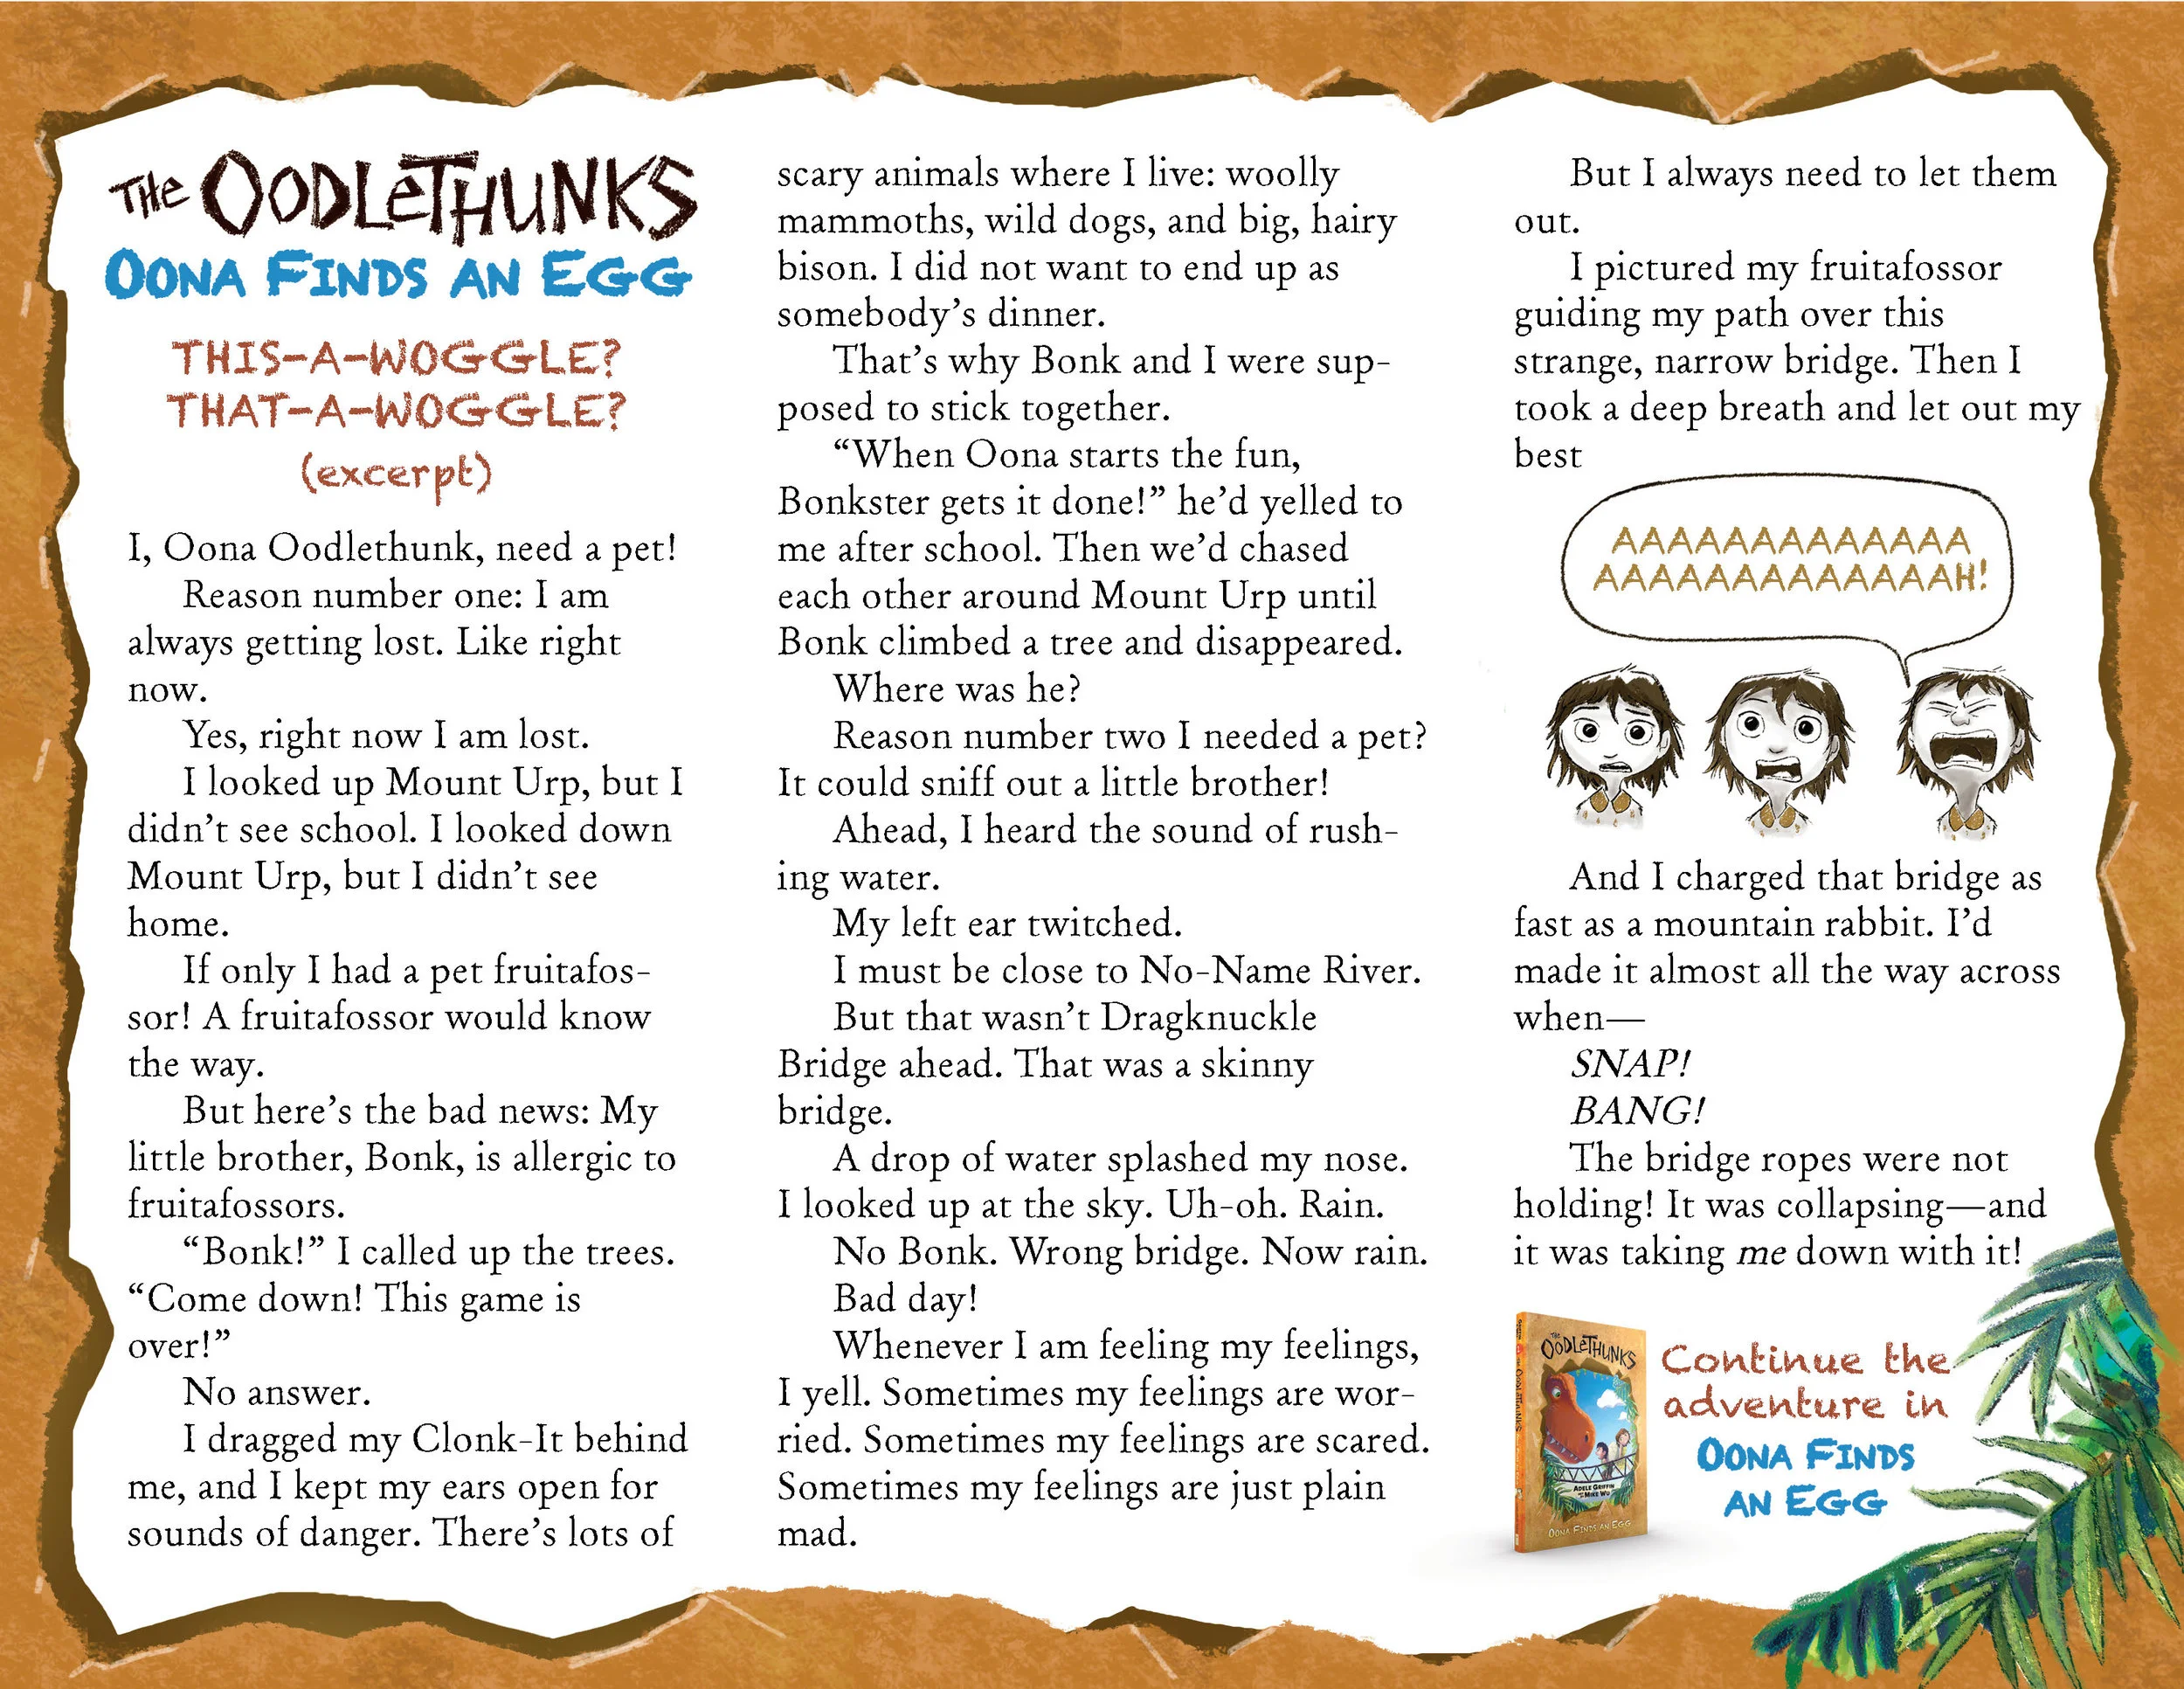 THE OODLETHUNKS
OONA FINDS AN EGG
THIS-A-WOGGLE?
THAT-A-WOGGLE?
(excerpt)
I, Oona Oodlethunk, need a pet!
Reason number one: I am
always getting lost. Like right
now.
Yes, right now I am lost.
I looked up Mount Urp, but I
didn’t see school. I looked down
Mount Urp, but I didn’t see
home.
If only I had a pet fruitafos-
sor! A fruitafossor would know
the way.
But here’s the bad news: My
little brother, Bonk, is allergic to
fruitafossors.
“Bonk!” I called up the trees.
“Come down! This game is
over!”
No answer.
I dragged my Clonk-It behind
me, and I kept my ears open for
sounds of danger. There’s lots of
scary animals where I live: woolly
mammoths, wild dogs, and big, hairy
bison. I did not want to end up as
somebody’s dinner.
That’s why Bonk and I were sup-
posed to stick together.
“When Oona starts the fun,
Bonkster gets it done!” he’d yelled to
me after school. Then we’d chased
each other around Mount Urp until
Bonk climbed a tree and disappeared.
Where was he?
Reason number two I needed a pet?
It could sniff out a little brother!
Ahead, I heard the sound of rush-
ing water.
My left ear twitched.
I must be close to No-Name River.
But that wasn’t Dragknuckle
Bridge ahead. That was a skinny
bridge.
A drop of water splashed my nose.
I looked up at the sky. Uh-oh. Rain.
No Bonk. Wrong bridge. Now rain.
Bad day!
Whenever I am feeling my feelings,
I yell. Sometimes my feelings are wor-
ried. Sometimes my feelings are scared.
Sometimes my feelings are just plain
mad.
But I always need to let them
out.
I pictured my fruitafossor
guiding my path over this
strange, narrow bridge. Then I
took a deep breath and let out my
best
AAAAAAAAAAAAA
AAAAAAAAAAAAAH!
And I charged that bridge as
fast as a mountain rabbit. I’d
made it almost all the way across
when—
SNAP!
BANG!
The bridge ropes were not
holding! It was collapsing—and
it was taking me down with it!
THE OODLETHUNKS
ADELE GRIFFIN
MIKE WU
OONA FINDS AN EGG
Continue the
adventure in
OONA FINDS
AN EGG